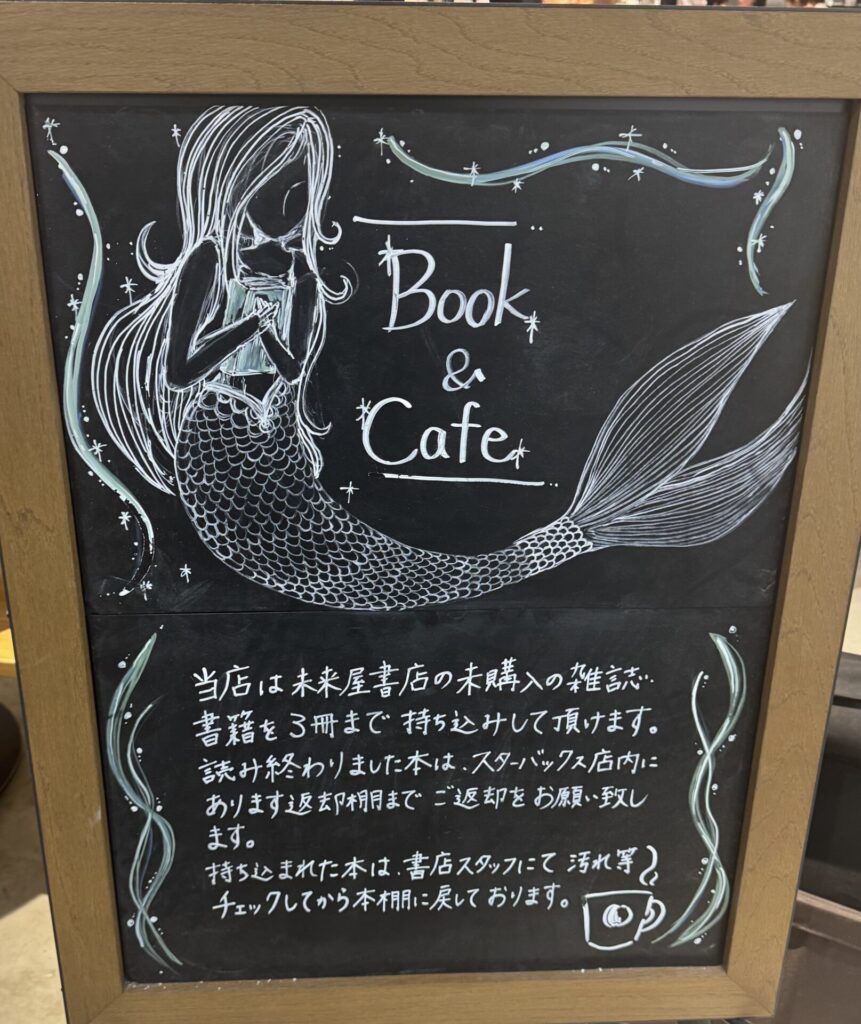 Book
&
Cafe
当店は未来屋書店の未購入の雑誌・
書籍を3冊まで持ち込みして頂けます。
読み終わりました本は、スターバックス店内に
あります返却棚までご返却をお願い致し
ます。
持ち込まれた本は、書店スタッフにて汚れ等
チェックしてから本棚に戻しております。